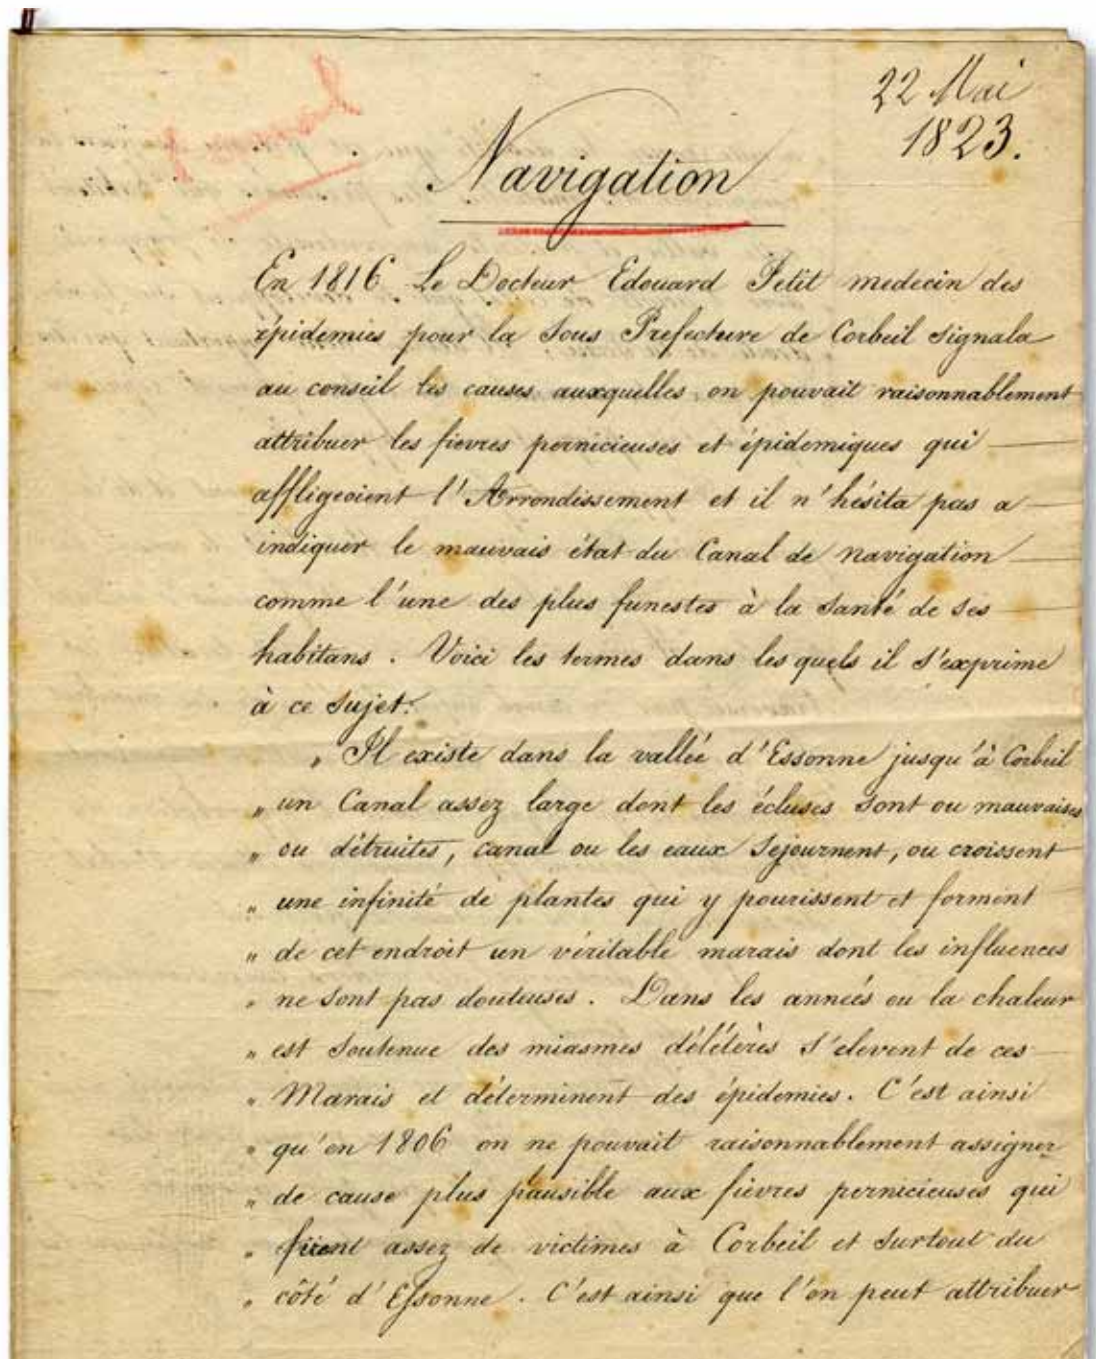 22 Mai
1823.
Navigation
En 1816 Le Docteur Edouard Petit medecin des
épidemies pour la Sous Prefecture de Corbeil Signala
au conseil les causes auxquelles on pouvait raisonnablement
attribuer les fievres pernicieuses et épidemiques qui
affligeoient l'Arrondissement et il n'hésita pas a
indiquer le mauvais état du Canal de navigation
comme l'une des plus funestes à la Santé de ses
habitans. Voici les termes dans les quels il S'exprime
à ce Sujet:
" Il existe dans la vallée d'Essonne jusqu'à Corbeil
" un Canal assez large dont les écluses Sont ou mauvaises
" ou détruites, canal ou les eaux Sejournent, ou croissent
" une infinité de plantes qui y pourissent et forment
" de cet endroit un véritable marais dont les influences
" ne Sont pas douteuses. Dans les années ou la chaleur
" est Soutenue des miasmes délétères S'elevent de ces
" Marais et déterminent des épidemies. C'est ainsi
" qu'en 1806 on ne pouvait raisonnablement assigner
" de cause plus plausible aux fièvres pernicieuses qui
" firent assez de victimes à Corbeil et Surtout du
" côté d'Essonne. C'est ainsi que l'on peut attribuer